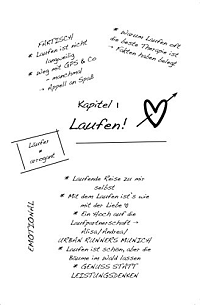 FAKTISCH
* Laufen ist nicht
langweilig
* Weg mit GPS & Co
- manchmal
→ Appell an Spaß
* Warum Laufen oft
die beste Therapie ist
→ Fakten holen belegt
Kapitel 1
Laufen!
Läufer
≠
arrogant
EMOTIONAL
* Laufende Reise zu mir
selbst
* Mit dem Laufen ist's wie
mit der Liebe
* Ein Hoch auf die
Laufpartnerschaft →
Alisa/Andrea/
URBAN RUNNERS MUNICH
* Laufen ist schön, aber die
Bäume im Wald lassen
* GENUSS STATT
LEISTUNGSDENKEN